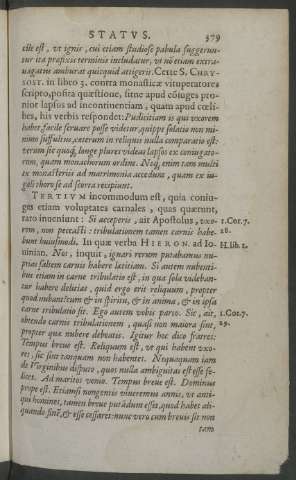 STATVS. 379
cile est, vt ignis, cui etiam studiose pabula suggeruntur
ita præfixis terminis includatur, vt nō etiam extra
uagatus amburat quicquid attigerit. Certe S. CHRYSOST.
in libro 3. contra monasticæ vituperatores
scripto, posita quæstione, sitne apud cōiuges pronior
lapsus ad incontinentiam, quam apud cœlibes,
his verbis respondet: Pudicitiam is qui vxorem
habet, facile seruare posse videtur, quippe solatio non minimo
suffultus, cæterum in reliquis nulla comparatio est:
verum hic quoq; longe plures videas lapsos ex coniugatorum,
quam monachorum ordine. Neq; enim tam multi
ex monasteriis ad matrimonia accedunt, quam ex iugali
thoro se ad scorta recipiunt.
TERTIVM incommodum est, quia coniuges
etiam voluptates carnales, quas quærunt,
raro inueniunt: Si acceperis, ait Apostolus, vxo- 1. Cor. 7.
rem, non peccasti: tribulationem tamen carnis habe- 28.
bunt huiusmodi. In quæ verba HIERON. ad Io- H. lib. 1.
uinian. Nos, inquit, ignari rerum putabamus nuptias
saltem carnis habere lætitiam. Si autem nubentibus
etiam in carne tribulatio est, in qua sola videbantur
habere delicias, quid ergo erit reliquum, propter
quod nubant: cum & in spiritu, & in anima, & in ipsa
carne tribulatio sit. Ego autem vobis parco. Sic, ait, 1. Cor. 7.
obtendo carnis tribulationem, quasi non maiora sint, 29.
propter quæ nubere debeatis. Igitur hoc dico fratres:
Tempus breue est. Reliquum est, vt qui habent vxores,
sic sint tanquam non habentes. Nequaquam iam
de Virginibus disputo, quos nulla ambiguitas est esse felices.
Ad maritos venio. Tempus breue est. Dominus
prope est. Etiamsi nongentis viueremus annis, vt antiqui
homines, tamen breue putādum esset, quod habet aliquando
finē, & esse cessaret: nunc vero cum breuis sit non
tam